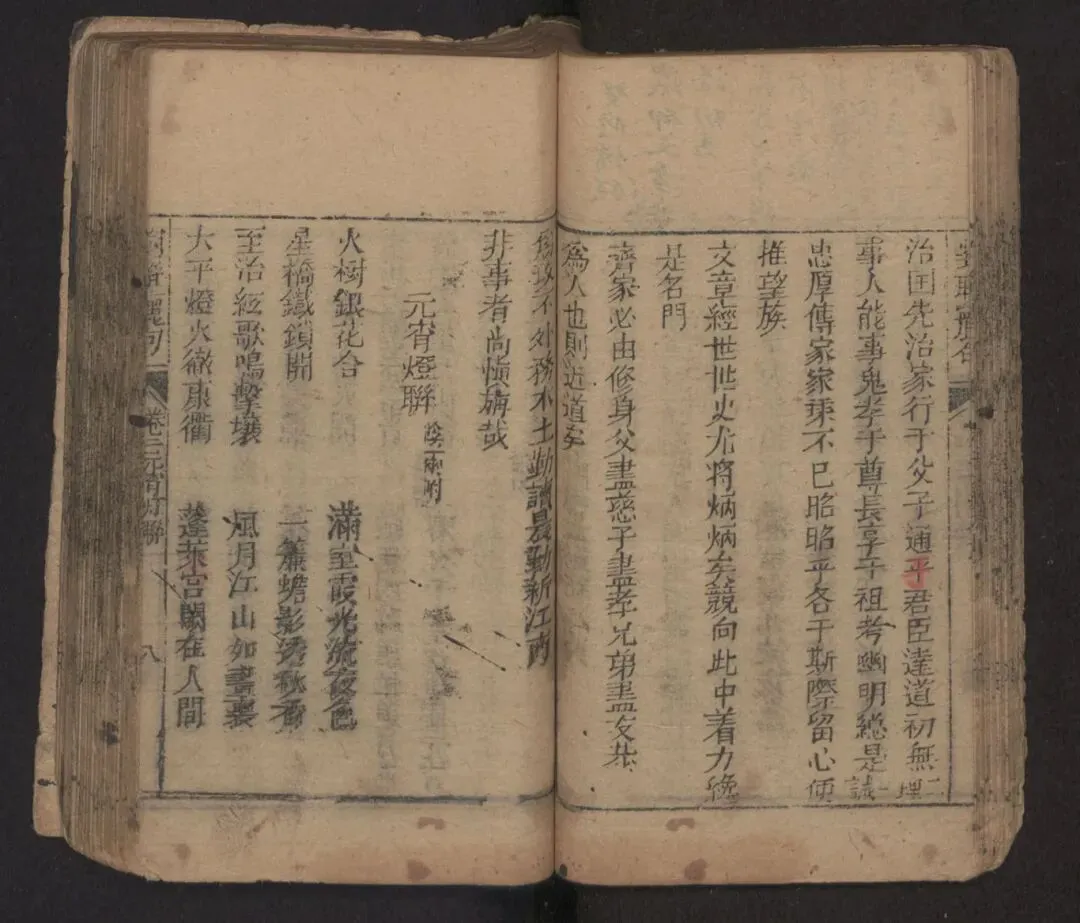 治国先治家行于父子通乎君臣達道初無二理
事人能事鬼孝于尊長享于祖考幽明總是一誠
忠厚傳家家乘不已昭昭乎各于斯際留心便
推望族
文章經世世史尤將炳炳矣競向此中着力纔
是名門
齊家必由修身父盡慈子盡孝兄弟盡友恭
爲人也則近道矣
不外務本土勤誠晨勤新江南
非事者尚慎旃哉
元宵燈聯
火樹銀花合
滿堂霞光流夜色
星橋鐵鎖開
一簾蟾影透秋香
至治絃歌鳴擊壤
風月江山如畫裏
太平燈火徹康衢
蓬萊宮闕在人間
卷三 元宵燈聯
八